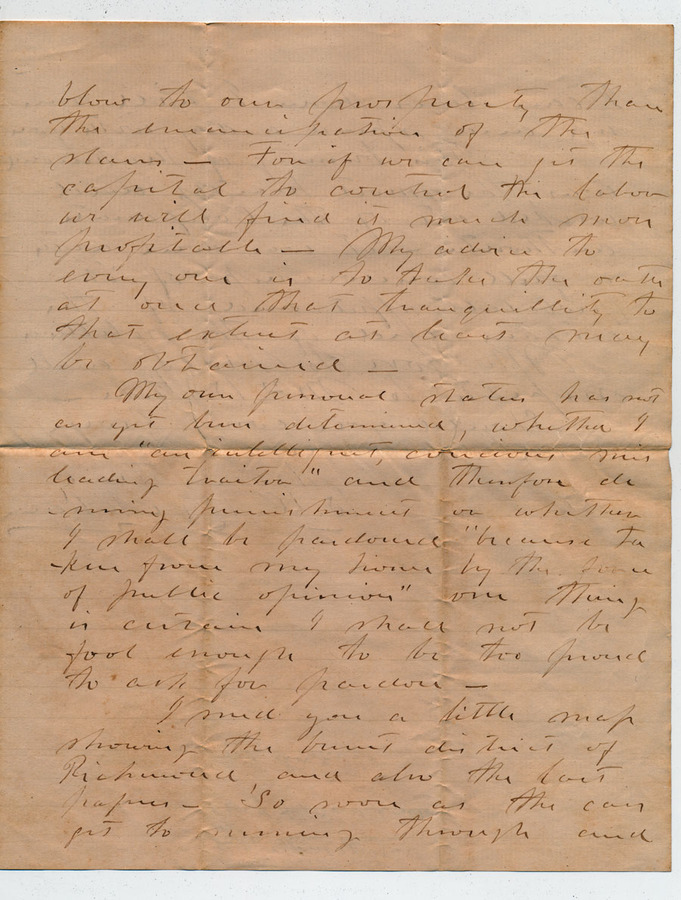 blow to our prosperity than
the emancipation of the
slaves — For if we can get the
capital to control the labor
we will find it much more
profitable — My advice to
every one is to take the oath
at once that tranquillity to
that extent at least may
be obtained —
My own personal status has not
as yet been determined, whether I
am "an intelligent, concious mis
leading traitor" and therefore de
serving punishment or whether
I shall be pardoned "because ta
-ken from my home by the force
of public opinion" one thing
is certain I shall not be
fool enough to be too proud
to ask for pardon —
I send you a little map
showing the burnt district of
Richmond and also the last
papers — So soon as the cars
get to running through and